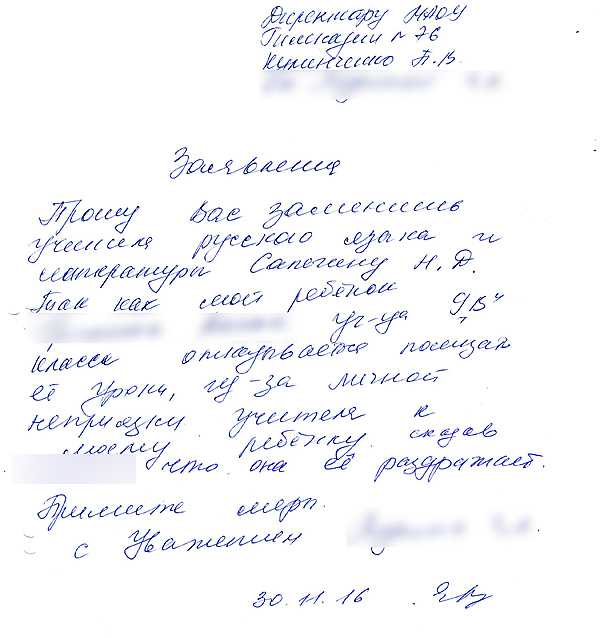 Директору МАОУ
Гимназии № 76
Килинченко П.В.
Заявление
Прошу Вас заменить
учителя русского языка и
литературы Сапегину Н.Д.
Так как мой ребёнок
уч-ца 9"В"
класса отказывается посещать
её уроки, из-за личной
неприязни учителя к
моему ребёнку сказав
что она её раздражает.
Примите меры.
с Уважением
30.11.16